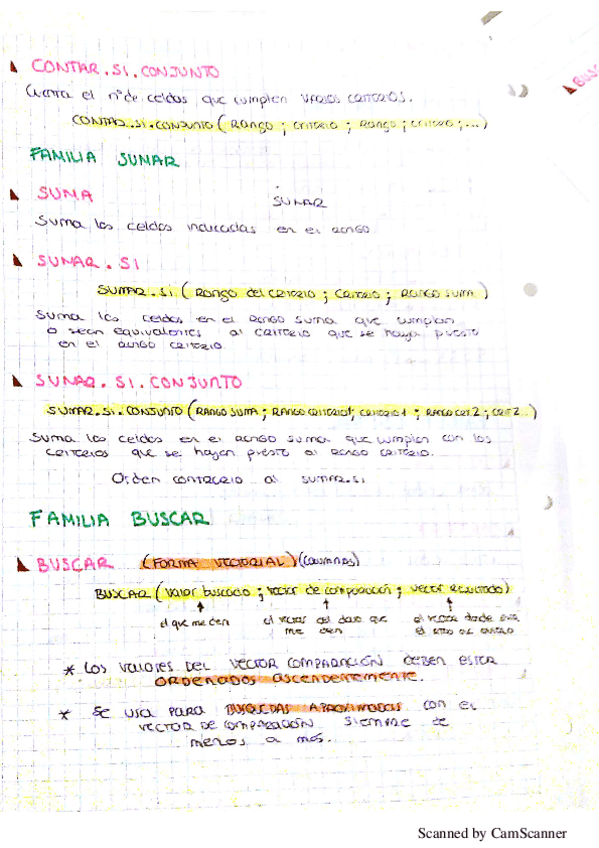 CONTAR.SI.CONJUNTO
Cuenta el nº de celdas que cumplen varios criterios.
CONTAR.SI.CONJUNTO (RANGO ; CRITERIO ; RANGO ; CRITERIO ;...)
BUSC
FAMILIA SUMAR
SUMA
SUMAR
Suma las celdas indicadas en el rango
SUMAR.SI
SUMAR.SI (Rango del criterio ; criterio ; RANGO SUMA)
Suma las celdas en el rango suma que cumplan
o sean equivalentes al criterio que se haya puesto
en el rango criterio.
SUMAR.SI.CONJUNTO
SUMAR.SI.CONJUNTO (RANGO SUMA ; RANGO CRITERIO1; CRITERIO1 ; RANGO CRT2 ; CRIT2..)
Suma las celdas en el rango suma que cumplan con los
criterios que se hayan puesto al rango criterio.
Orden contrario al sumar.si
FAMILIA BUSCAR
BUSCAR (FORMA VECTORIAL) (COLUMNAS)
BUSCAR (Valor buscado ; vector de comparación ; vector resultado)
el que me den
el vector del dato que
me den
el vector donde está
el
* LOS VALORES DEL VECTOR COMPARACIÓN DEBEN ESTAR
ORDENADOS ASCENDENTEMENTE.
* SE USA PARA BÚSQUEDAS APROXIMADAS CON EL
VECTOR DE COMPARACIÓN SIEMPRE DE
menos a más.
Scanned by CamScanner